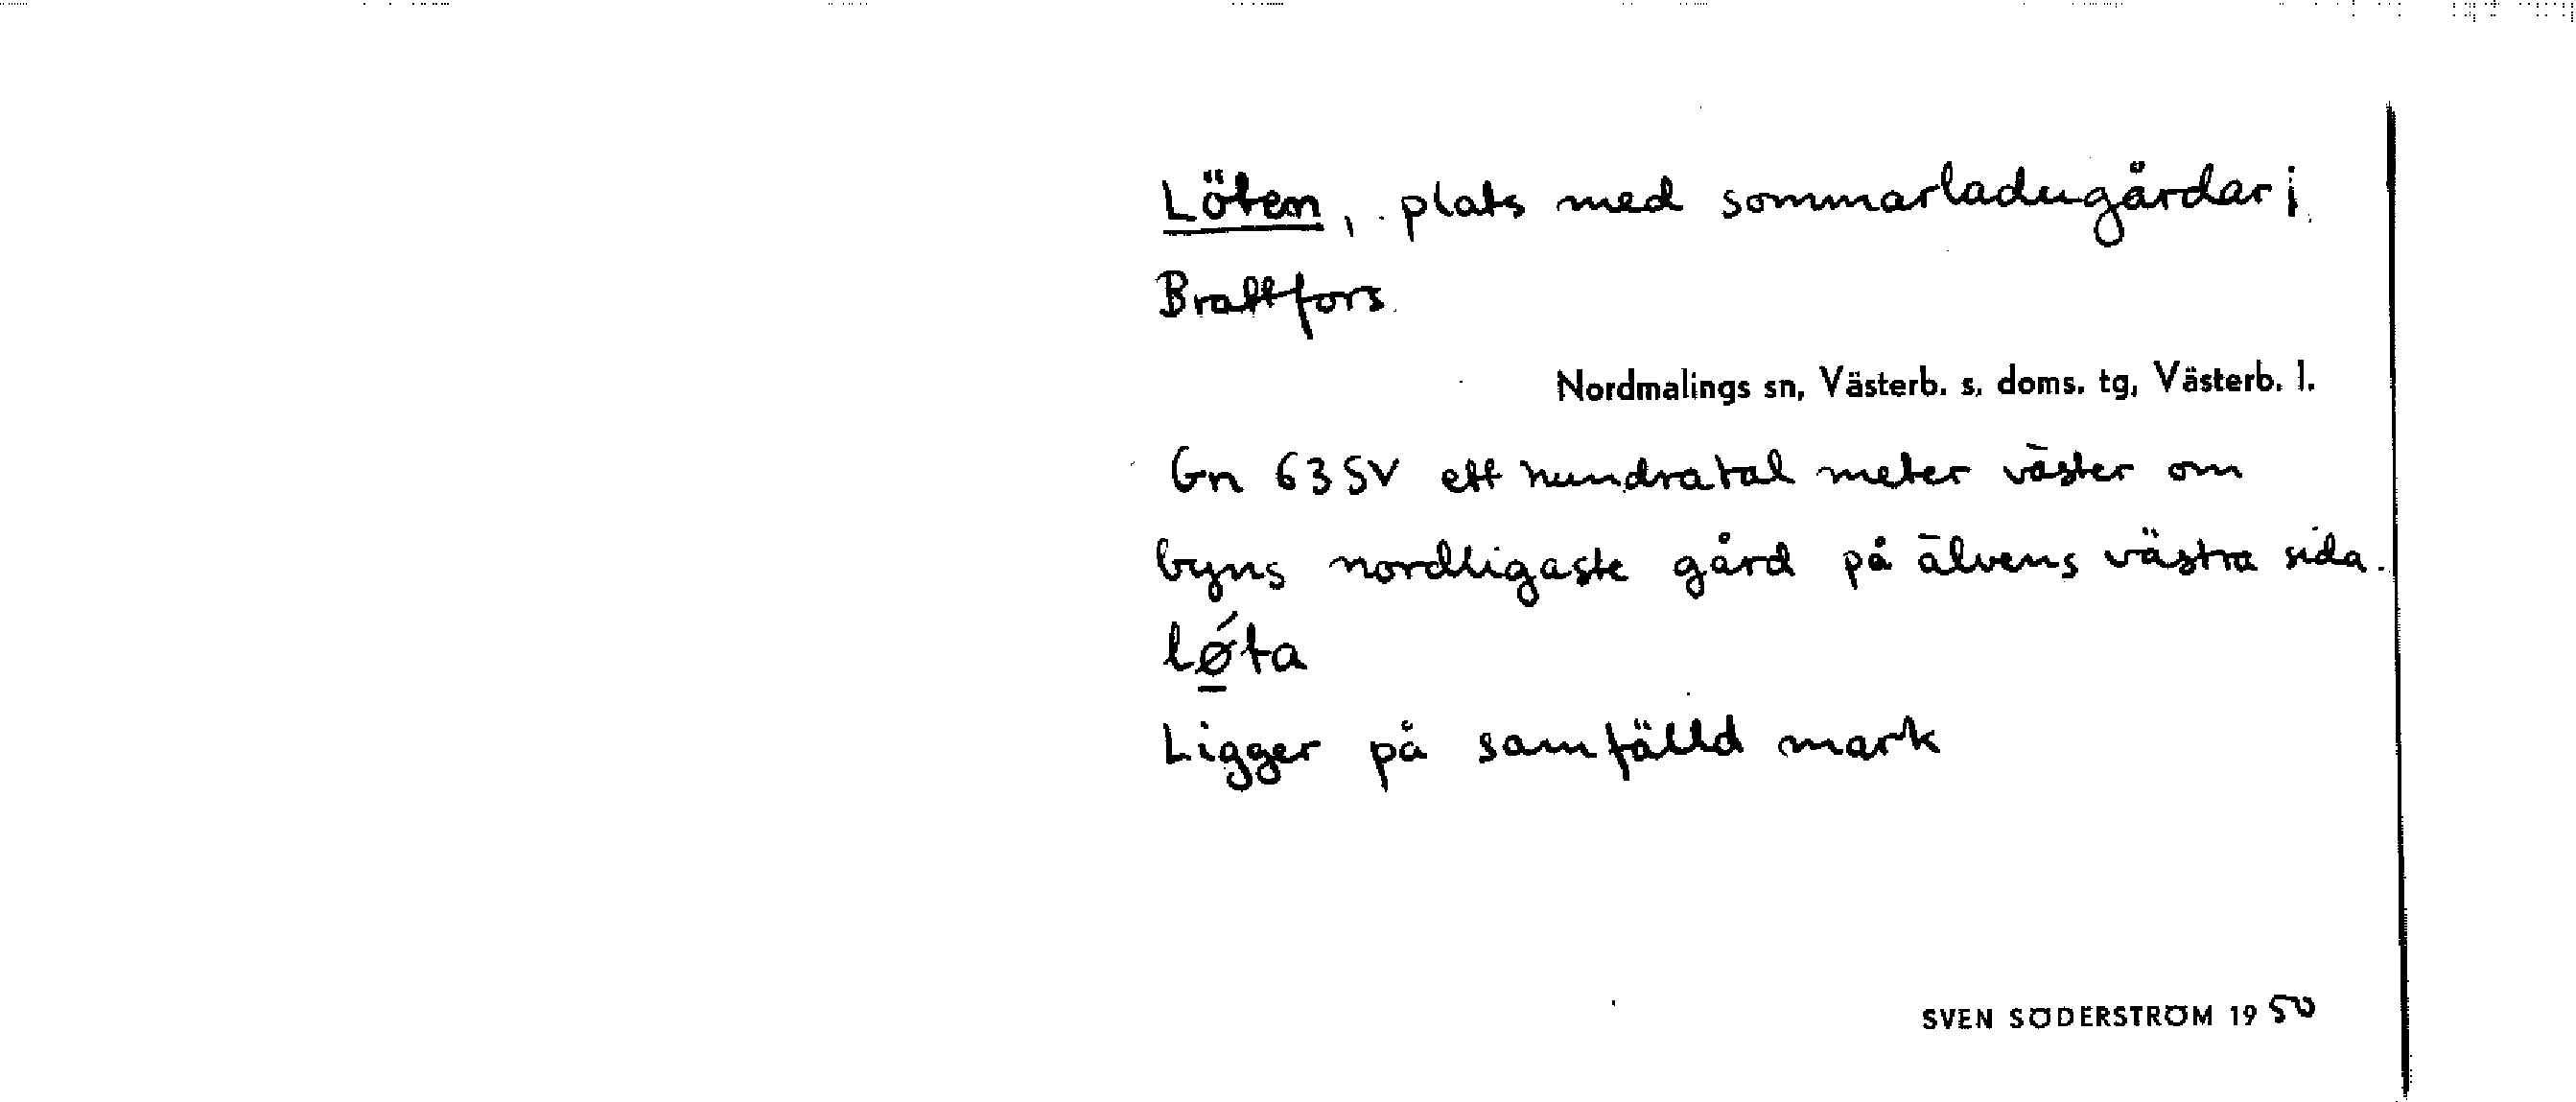 Löten, plats med sommarladugårdar i
Brattfors.
Nordmalings sn, Västerb. s. doms. tg, Västerb. l.
Gn 63 SV ett hundratal meter väster om
byns nordligaste gård på älvens västra sida.
lǿ̲ta
Ligger på samfälld mark
SVEN SÖDERSTRÖM 1950